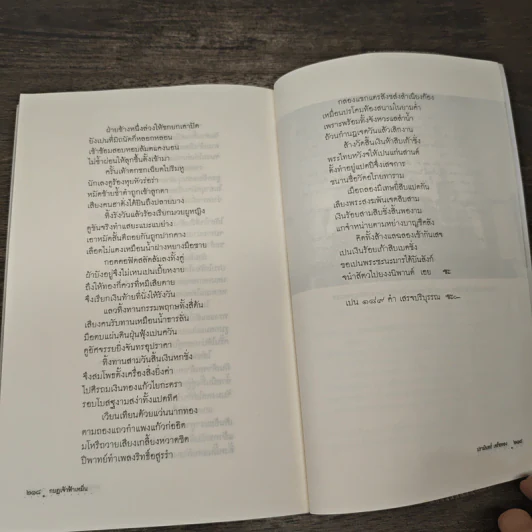 ฝ่ายข้างหนึ่งล่วงให้ชกยกเสาปัด
ยังเปนที่มิถนัดก็หลอกหล่อน
เข้าช้อนสอบทอบล้มลงนอน
ไม่ช้ำย่อนให้ลุกขึ้นตั้งเข้ามา
ครั้นเท้าตกชกเฉียดไปริมหู
นักเลงดูร้องหุยหัวร่อร่า
หมัดซ้ายซ้ำคำถูกเข้าลูกตา
เสียงคนฮาดังได้ยินถึงปลายบาง
ทิ้งรังวันแล้วร้องเรียกมวยผู้หญิง
ดูขันจริงทำแสยะแบะแบบปาง
เอาหมัดสั้นตีถอยกันถูกปากคาง
เลือดไม่แดงเหมือนน้ำฝางหยางเมื่อขาย
กอดคอฟัดสลัดล้มลงทั้งคู่
ผ้ายังอยู่จึงไม่เหนเปนเบี้ยหงาย
ถึงให้ทองก็ควรที่หมีเสียดาย
จึงเรียกเงินท้ายที่นั่งให้รังวัน
แลวทิ้งทานกรรมพฤกษทั้งสี่ต้น
เสียงคนรับทานเหมือนน้ำธารลั่น
มืดตบแผ่นดินฝุ่นฟุ้งเปนควัน
ดูอัศจรรยยิ่งจันทรอุปราคา
ทิ้งทานสามวันสิ้นเงินหกชั่ง
จึงสมโพธตั้งเครื่องสิ่งยิ่งค่า
ไปศีรถมเงินทองแก้วโบกะตรา
รอบโบสฐงามสง่าทั้งแปดทิศ
เวียนเทียนด้วยแว่นนากทอง
ตามถองแถวกำแพงแก้วก่ออิด
มโหรีถวายเสียงเกลี้ยงหวาดชิด
ปี่พาทย์ทำเพลงริทชื่อสูรร่ำ
๒๑๘ กรมเจ้าฟ้าเหม็น
กลองแขกแตรสังขส่งสำเนียงก้อง
เหมือนปรโคมห้องสนามในยามค่ำ
เพราะพร้อมทั้งจังหวะแลลำนำ
ล้วนกำนฎเจควันแล้วเลิกงาน
สร้างวัดสิ้นเงินห้าสิบห้าชั่ง
พระไทยหวังจะให้เปนแก่นสาน
ตั้งท่าอยู่แปดปีจึ่งเสจการ
ขนานชื่อวัดอะไภยทาราม
เมื่อฉลองมีเทพยี่สิบแปดกัน
เลี้ยงพระสงฆรพันเจดสิบสาม
เงินร้อยสามสิบชั่งสิ้นพองาม
แกจำหน่ายตามหน่างบาญชีสัง
คิดทั้งสร้างแลฉลองเข้ากันเสจ
เปนเงินร้อยเก้าสิบเบดชั่ง
ขอเปนพระชนะมารได้บันลังก์
ขนำสัตวไปยงงนิพานด์ เฮย ๛
เปน ๑๔๙ คำ เสรจบริบูรรณ ๛